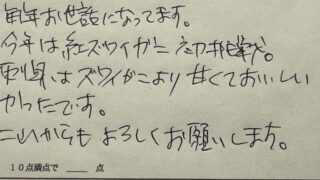 毎年お世話になってます。
今年は紅ズワイガニ初挑戦。
刺身はズワイガニより甘くておいしい
かったです。
これからもよろしくお願いします。
10点満点で ____ 点